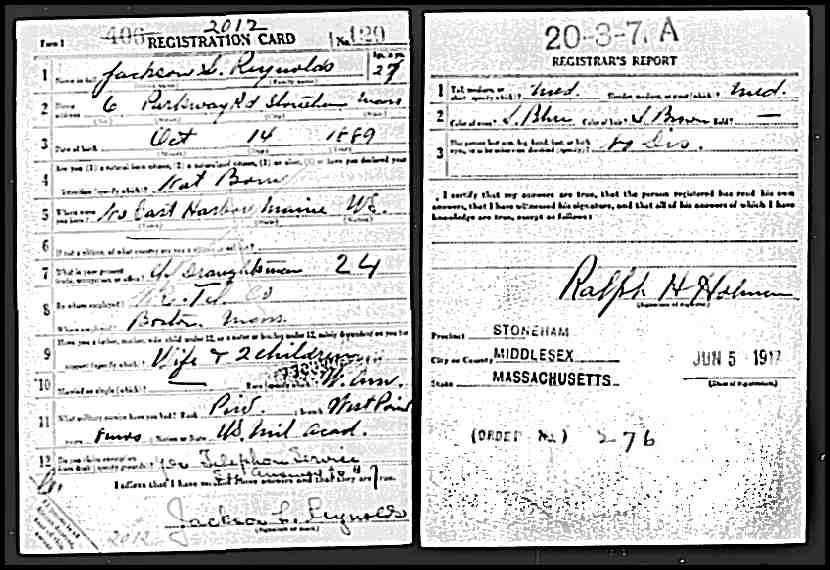 Form 1 406 2012 REGISTRATION CARD No. 120
1 Name in full Jackson L. Reynolds Age, in yrs. 27
(Family name)
2 Home address 6 Parkway Rd Stoneham Mass
(No.) (Street) (City) (State)
3 Date of birth Oct 14 1889
(Month) (Day) (Year)
Are you (1) a natural born citizen, (2) a naturalized citizen, (3) an alien, (4) or have you declared your
4 intention (specify which)? Nat Born
5 Where were you born? No East Harbor Maine US.
(Town) (State) (Nation)
6 If not a citizen, of what country are you a citizen or subject?
7 What is your present trade, occupation, or office? Draughtsman 24
8 By whom employed? Tel Co
Where employed? Boston, Mass.
Have you a father, mother, wife, child under 12, or a sister or brother under 12, solely dependent on you for
9 support (specify which)? Wife & 2 children
10 Married or single (which)? Race (specify which)?
11 What military service have you had? Rank Priv. branch West Point
years Nation or State US. Mil Acad.
12 Do you claim exemption from draft (specify grounds)? yes Telephone Service
Answer to # 7
I affirm that I have verified above answers and that they are true.
Jackson L. Reynolds
2012 (Signature or mark)
20-3-7. A
REGISTRAR'S REPORT
1 Tall, medium, or short (specify which)? Med. Slender, medium, or stout (which)? Med.
2 Color of eyes? L. Blue Color of hair? L. Brown Bald? —
3 Has person lost arm, leg, hand, foot, or both eyes, or is he otherwise disabled (specify)? No Dis.
I certify that my answers are true, that the person registered has read his own
answers, that I have witnessed his signature, and that all of his answers of which I have
knowledge are true, except as follows:
Ralph H Holman
(Signature of registrar)
Precinct STONEHAM
City or County MIDDLESEX JUN 5 1917
State MASSACHUSETTS (Date of registration)
(ORDER No.) 276